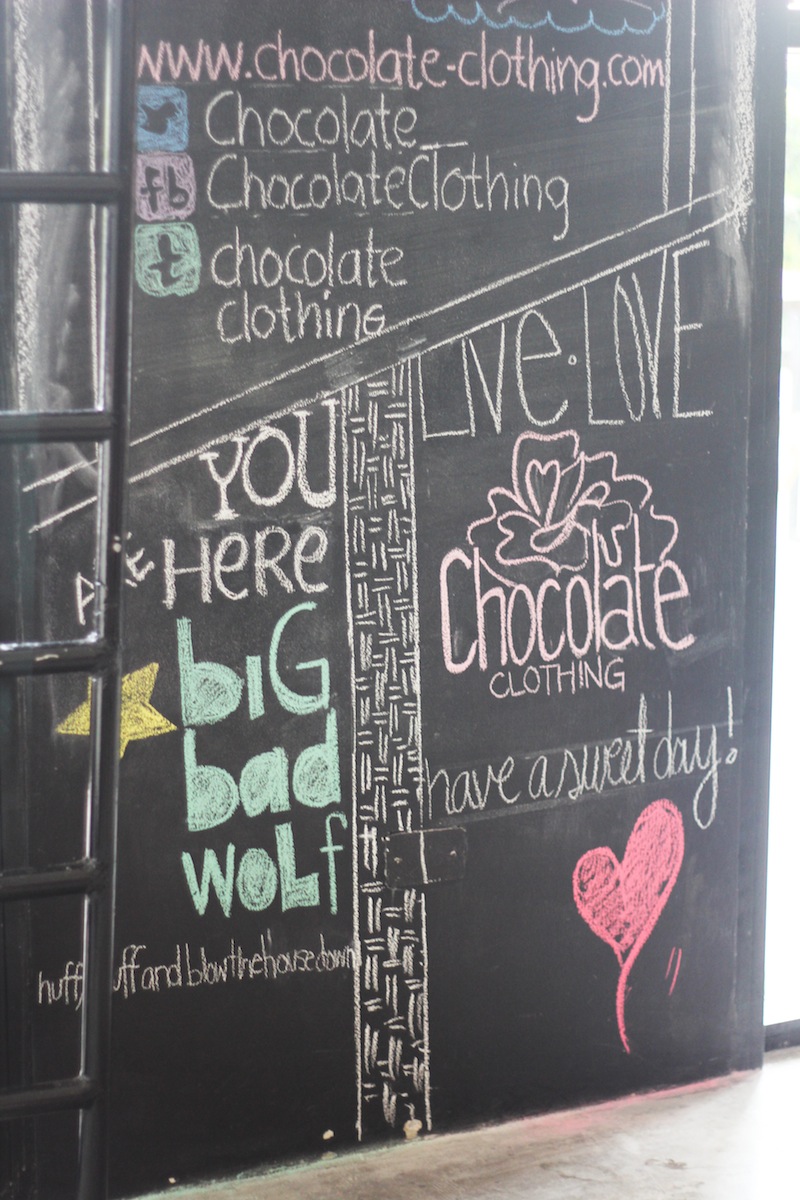 www.chocolate-clothing.com
Chocolate_
fb ChocolateClothing
t chocolate
clothing
LIVe·LOVE
YOU
ARE HeRe
bIG
bad
WOLf
huff, uff and blow the house down
Chocolate
CLOTHING
have a sweet day!